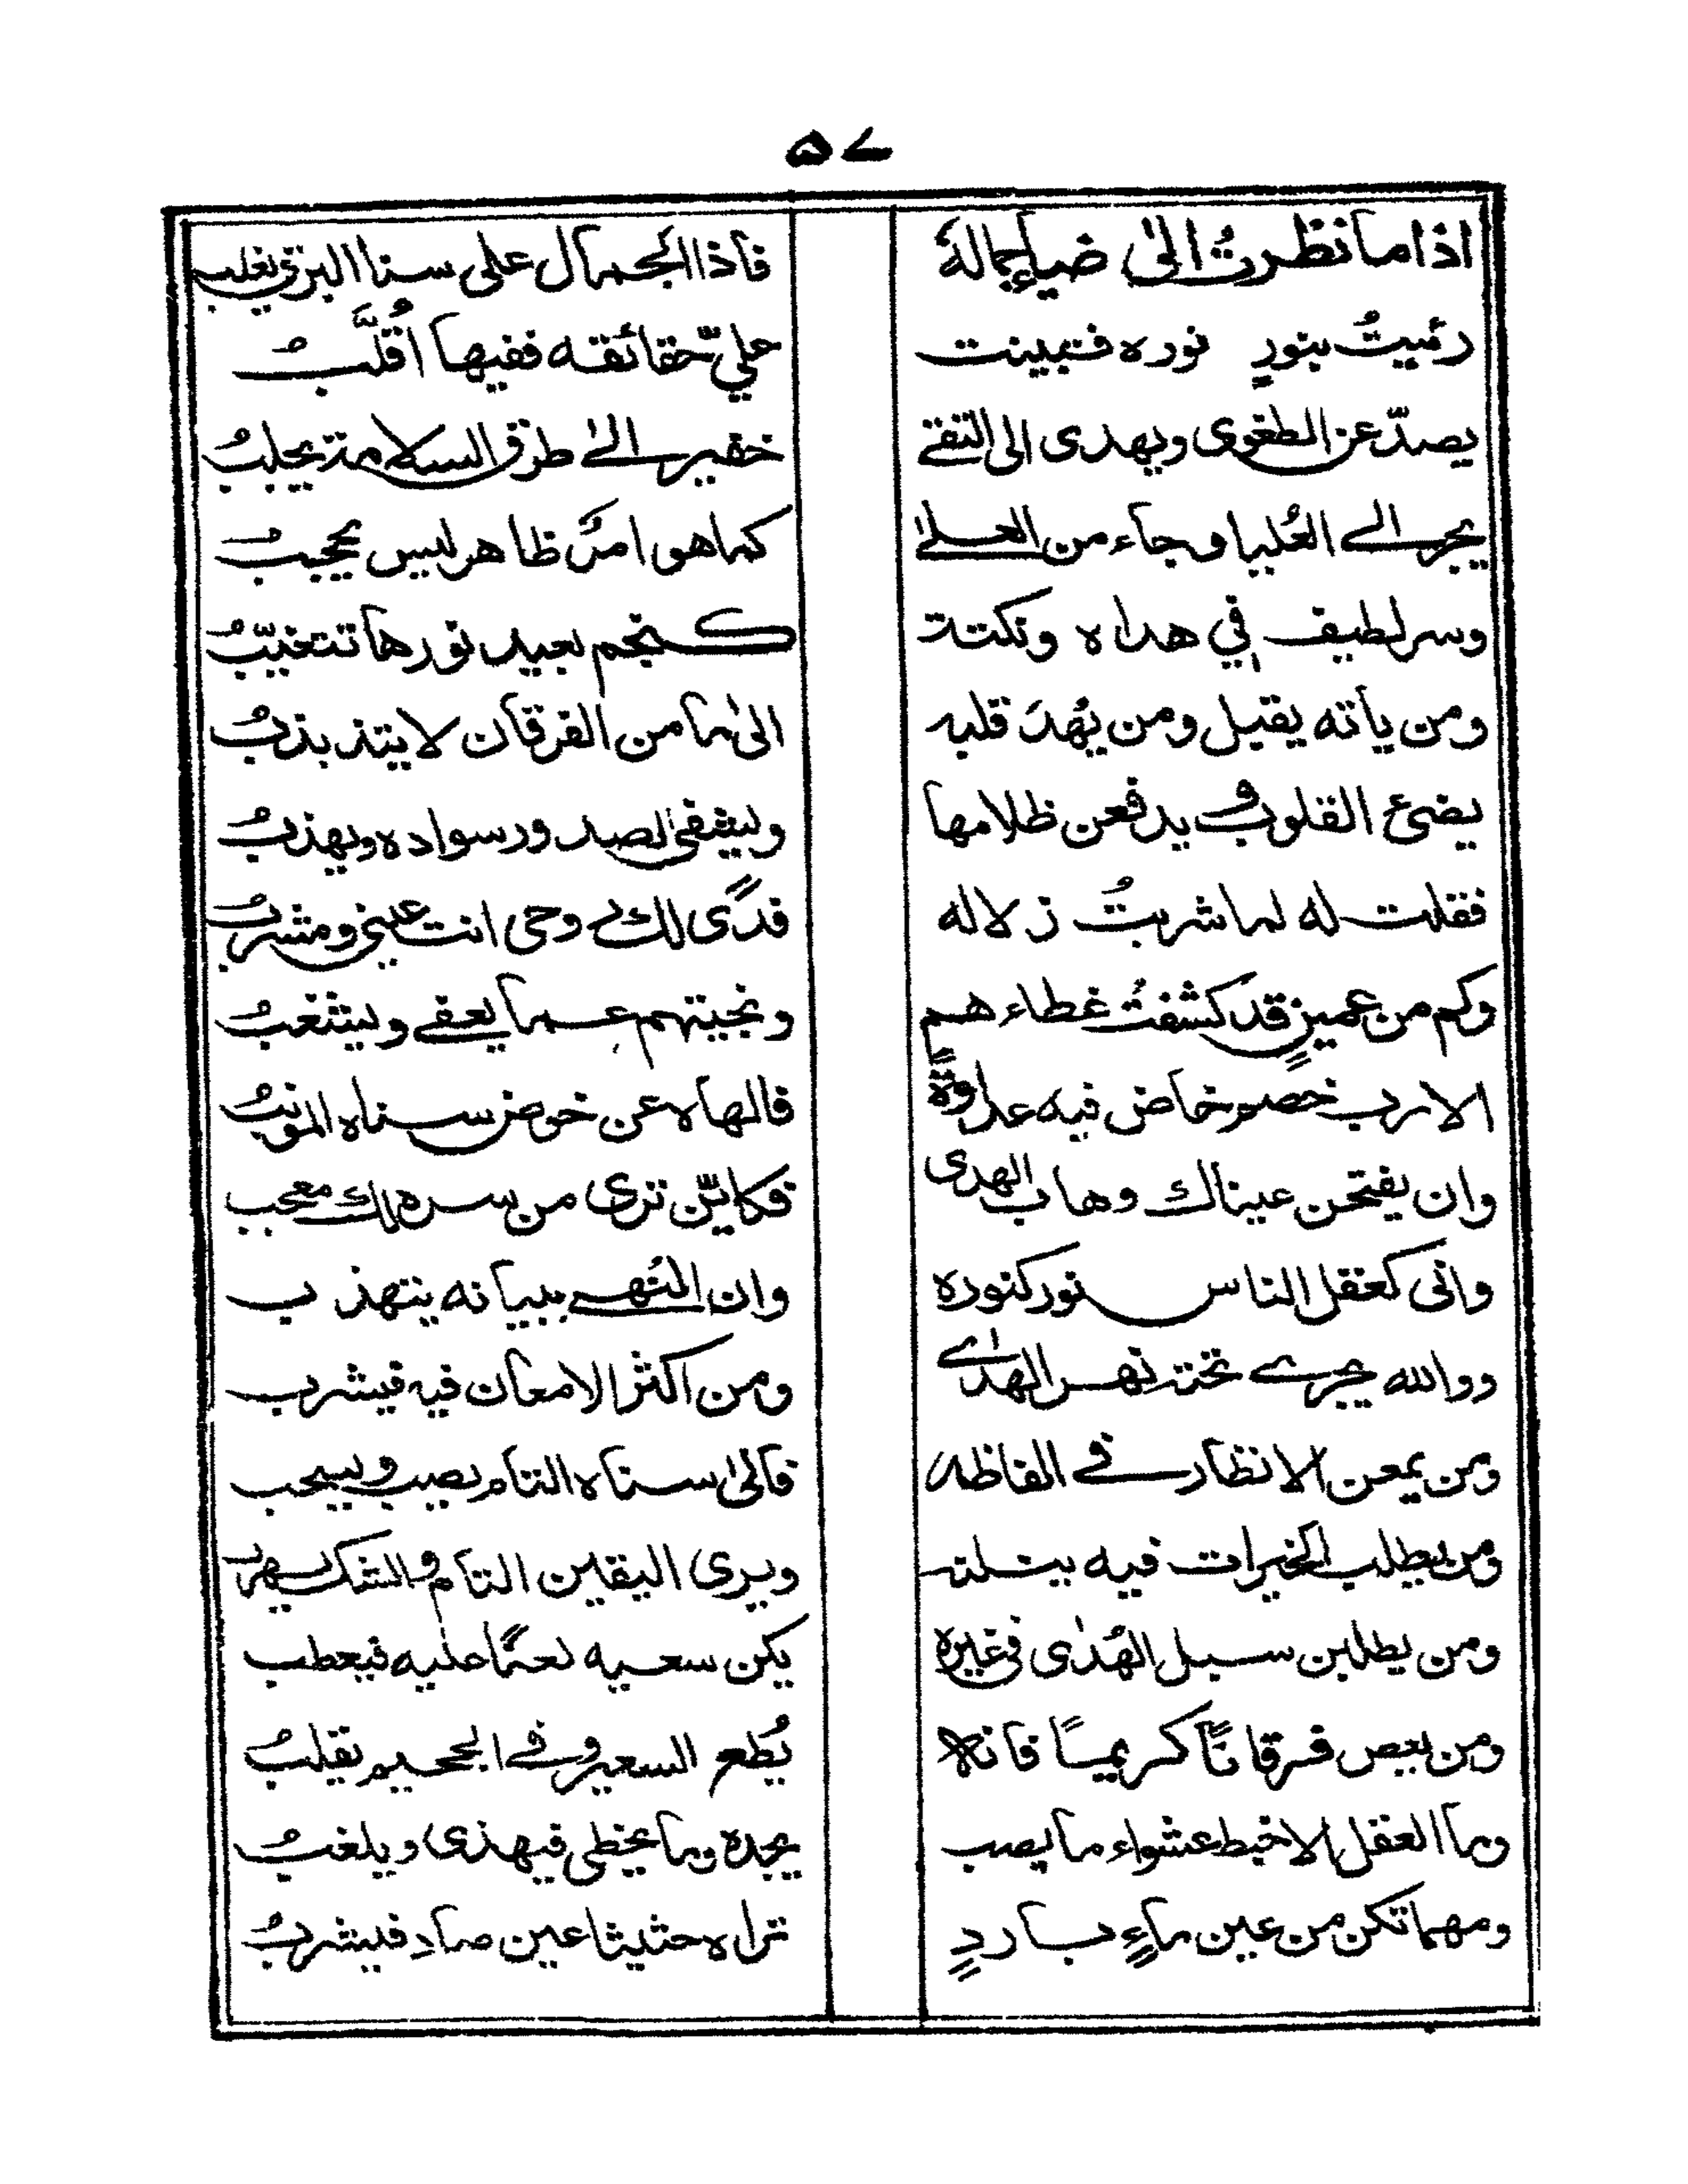 ۵۷
اذا ما نظرتُ الىٰ ضياءِ جماله فاذا الجمال على سنا البرق يغلب
رئيتُ بنورٍ نوره فتبينت عليّ حقائقه ففيها اُقلَّبُ
يصدّ عن الطغوى ويهدى الى التقے خفير الىٰ طرق السلامة يجلبُ
يجر الے العُليا وجاء من العلےٰ كما هو امرٌ ظاهر ليس يحجبُ
وسر لطيف في هداه ونكتة كنجم بعيد نورها تتغيّبُ
ومن يأته يقبل ومن يهُدَ قلبه الىٰ مامن الفرقان لا يتذبذبُ
يضىء القلوب و يدفعن ظلامها ويشفى الصدور سواده ويهذبُ
فقلت له لما شربتُ زلاله فدًى لك روحى انت عينى ومشربُ
وكم من عمينٍ قد كشفتُ غطاء هم ونجيتهم عما يعفے ويشغبُ
الا رب خصم خاض فيه عداوةً فالهاه عن خوض سناه المونبُ
وان يفتحن عيناك وهاب الهدى فكايّن ترى من سره لك معجب
وانى كعقل الناس نور كنوره وان النُهے ببيانه يتهذب
ووالله يجرے تحته نهر الهدٰے ومن اكثر الامعان فيه فيشرب
ومن يمعن الانظار فے الفاظه فالىٰ سناه التام يصبو ويسحب
ومن يطلب الخيرات فيه ينلنه ويرى اليقين التام والشك يهرب
ومن يطلبن سبل الهُدٰى فى غيره يكن سعيه لعنًا عليه فيعطب
ومن يعص فرقانًا كريمًا فانه يُطع السعير و فے الجحيم يقلبُ
وما العقل الا خبط عشواء ما يصب يجده وما يخطى فيهذى و يلغبُ
ومهما تكن من عين ماءٍ باردٍ تراه حثيثا عين صادِ فيشربُ